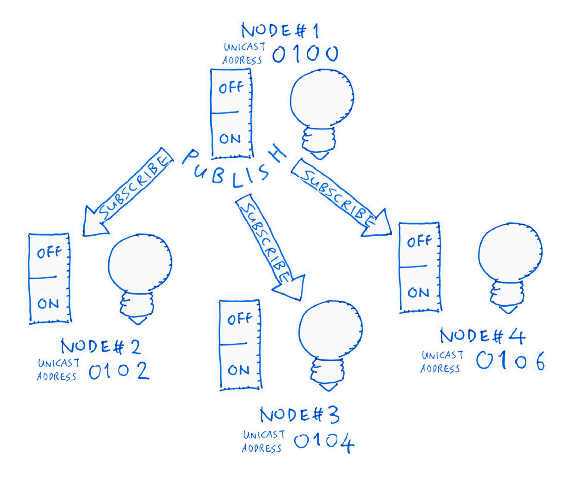 NODE#1
UNICAST ADDRESS 0100
OFF
ON
PUBLISH
SUBSCRIBE
SUBSCRIBE
SUBSCRIBE
OFF
ON
NODE#2
UNICAST ADDRESS 0102
OFF
ON
NODE#3
UNICAST ADDRESS 0104
OFF
ON
NODE#4
UNICAST ADDRESS 0106